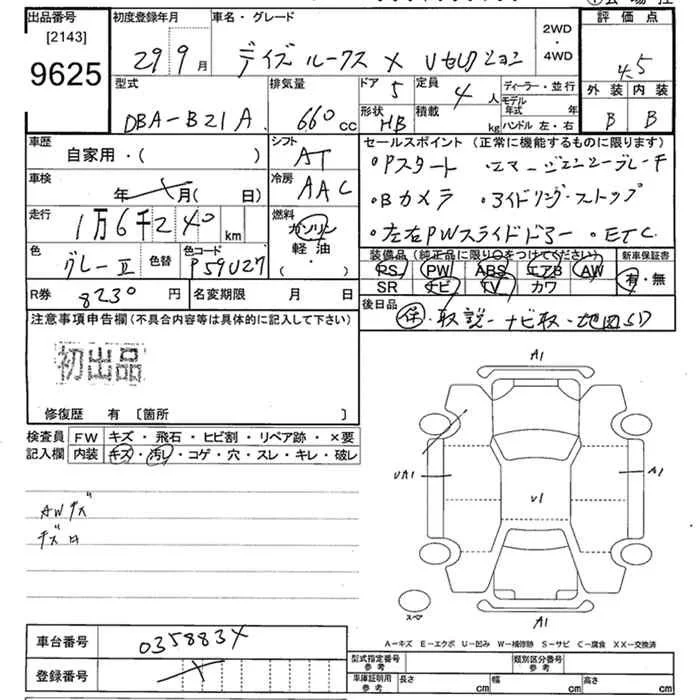 出品番号
[2143]
9625
初度登録年月
29 9月
車名・グレード
デイズ ルークス X Vセレクション
2WD・4WD
評価点
4.5
外装 内装
B B
型式
DBA-B21A
排気量
660cc
ドア 5
形状 HB
定員 4人
積載 kg
ディーラー・並行
モデル年式 年
ハンドル 左・右
車歴
自家用・( )
シフト
AT
セールスポイント (正常に機能するものに限ります)
・Pスタート ・エマージェンシーブレーキ
・Bカメラ ・アイドリング・ストップ
・左右PWスライドドアー ・ETC
車検
年 月( 日)
冷房
AAC
走行
1万6千240km
燃料
ガソリン
軽油
( ・ )
色
グレーII
色替
色コード
P59U27
装備品 (純正品に限り○をつけてください) 新車保証書
PS PW ABS エアB AW
SR ナビ TV カワ
有・無
R券 8230円
名変期限 月 日
後日品
保・取説・ナビ取・地図SD
注意事項申告欄(不具合内容等は具体的に記入して下さい)
初出品
修復歴 有 〔箇所 〕
検査員記入欄
FW キズ・飛石・ヒビ割・リペア跡・×要
内装 キズ・汚レ・コゲ・穴・スレ・キレ・破レ
AWキズ
キズ
A1
UA1
U1
A1
A1
スペア
A-キズ E-エクボ U-凹み W-補修跡 S-サビ C-腐食 XX-交換済
車台番号 035883X
登録番号
型式指定番号参考 類別区分番号参考
車庫証明用参考 長さ cm 幅 cm 高さ cm